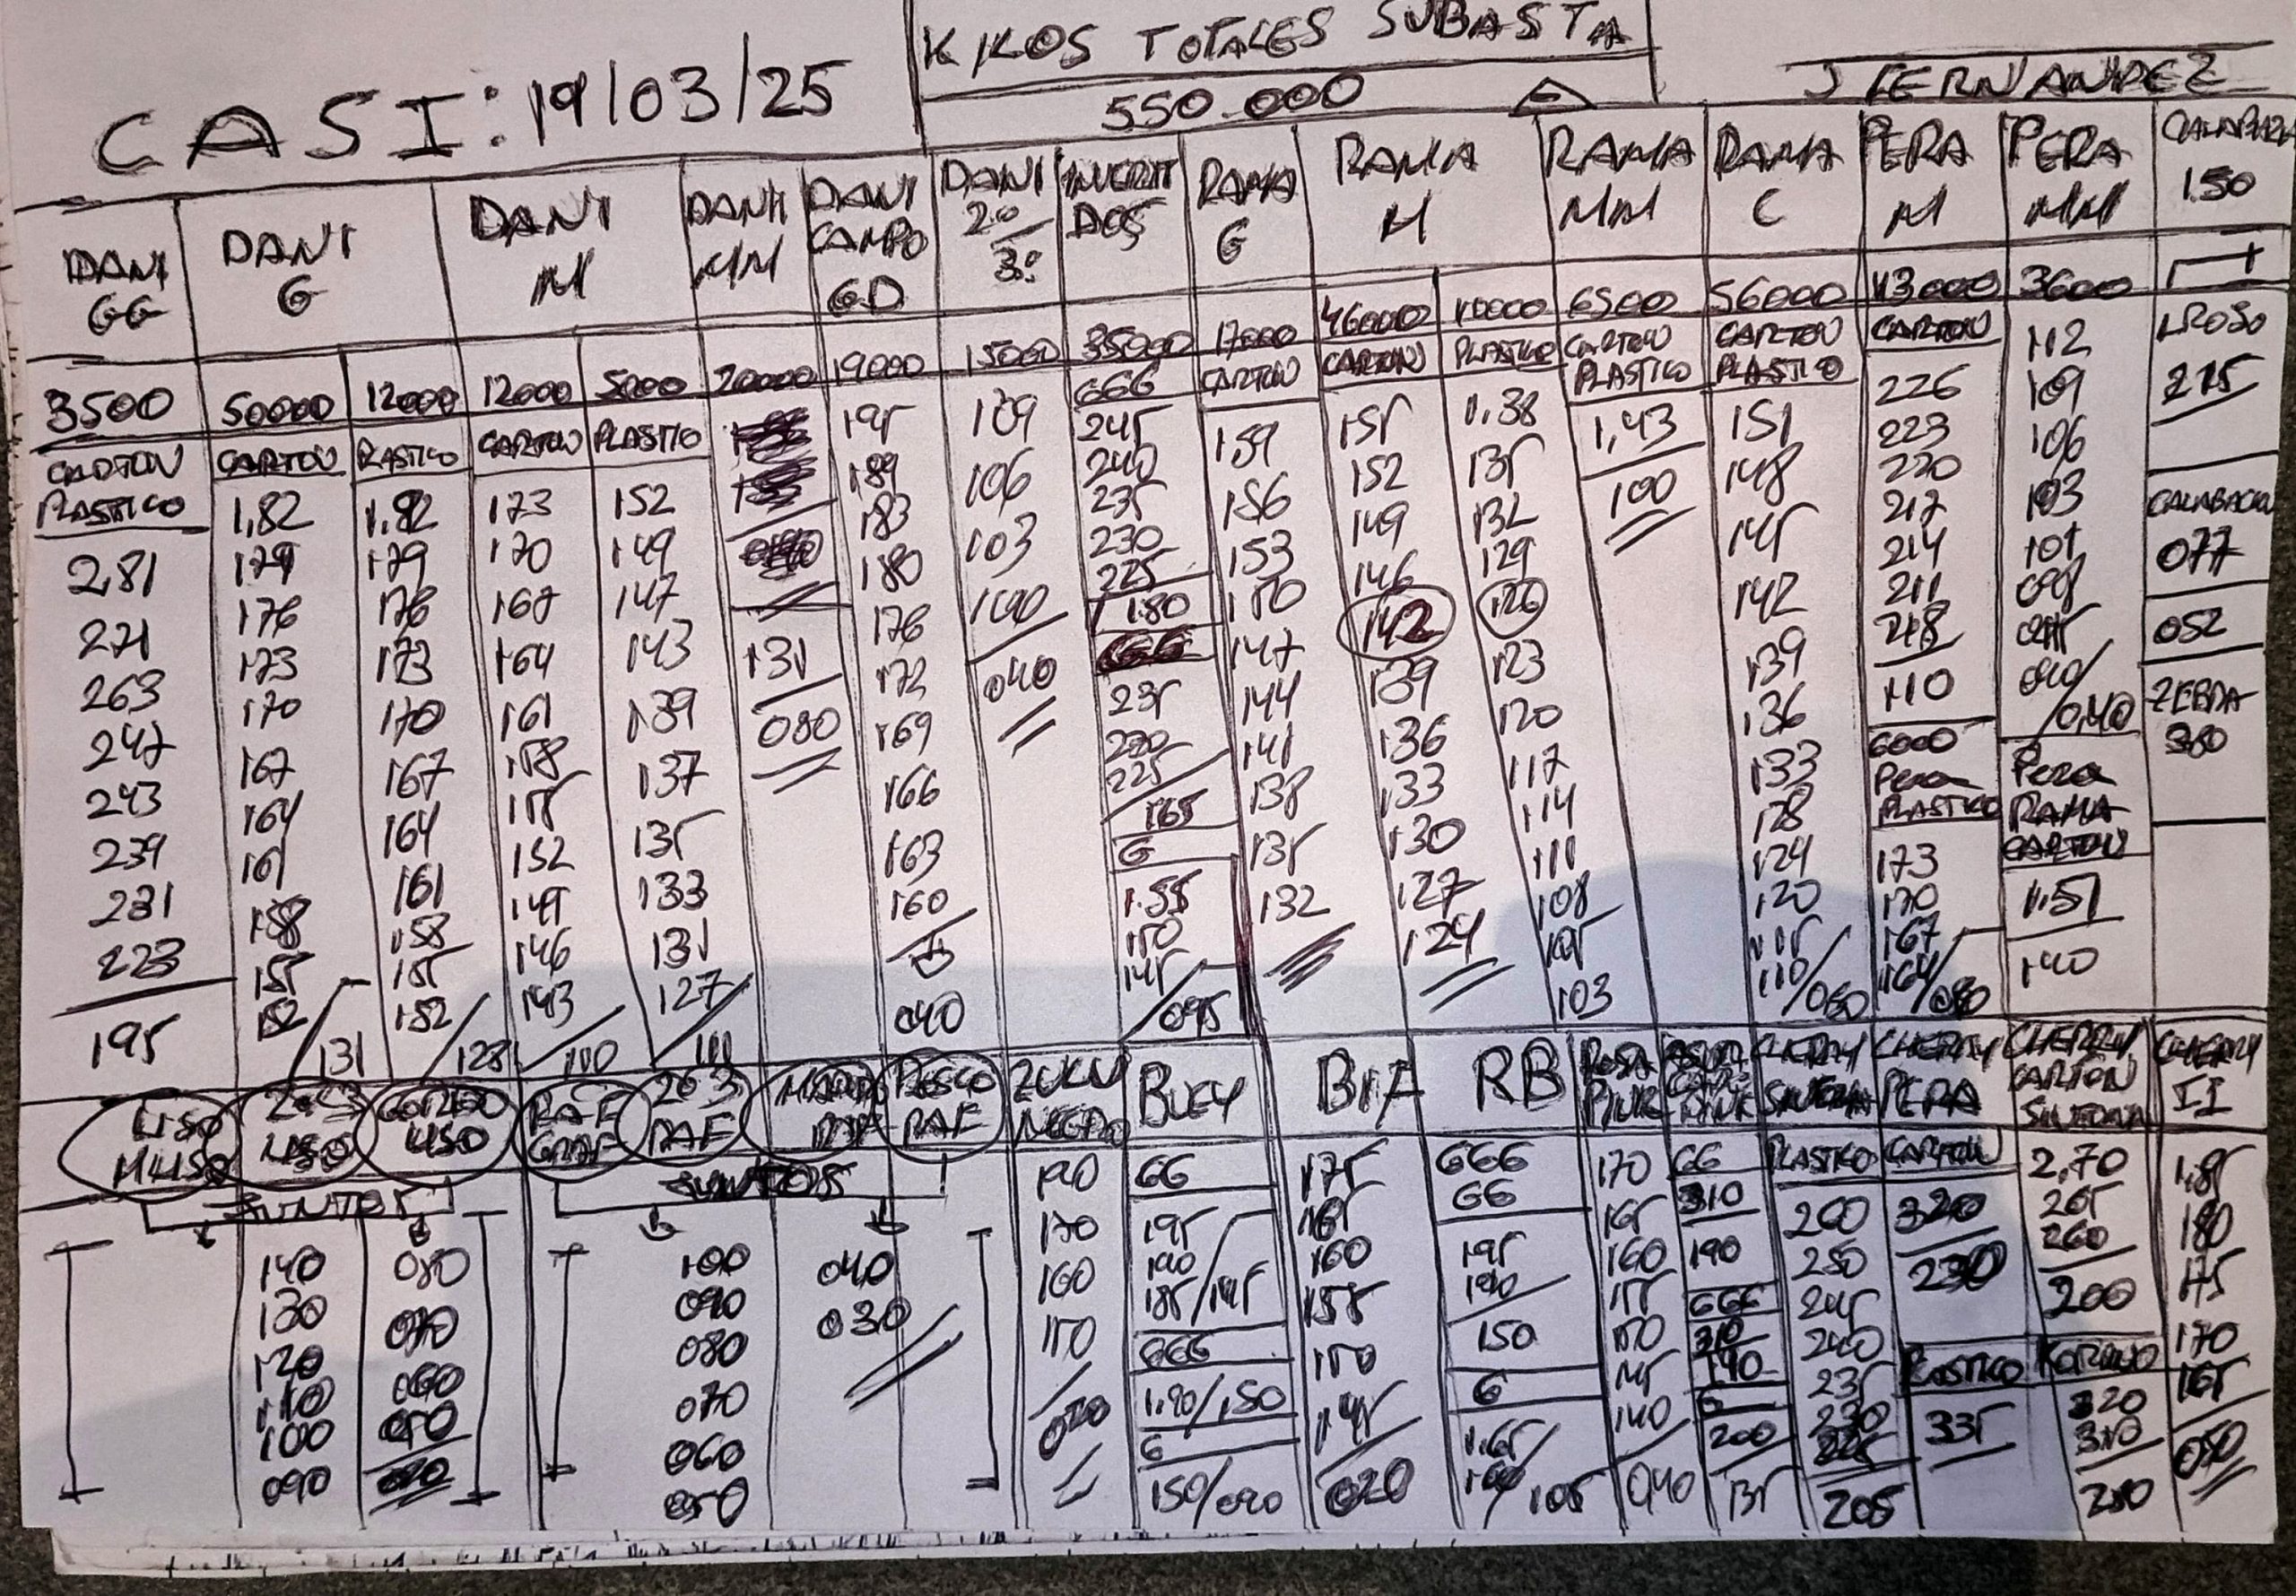 KIKOS TOTALES SUBASTA
CASI: 19/03/25
550.000
J FERNANDEZ
DANI GG
DANI G
DANI M
DANI MM
DANI CAMPO GD
DANI 2º/3º
INVERTIDOS
RAMA G
RAMA M
RAMA MM
RAMA C
PERA M
PERA MM
CALABAZA
150
3500
50000
12000
12000
5000
20000
19000
15000
35000
17000
46000
10000
6500
56000
13000
3600
CARTON
PLASTICO
281
271
263
247
243
239
231
223
195
CARTON
1,82
179
176
173
170
167
164
161
158
155
152
131
PLASTICO
1,82
179
176
173
170
167
164
161
158
155
152
128
CARTON
173
170
167
164
161
158
155
152
149
146
143
110
PLASTICO
152
149
147
143
139
137
135
133
131
127
131
080
195
189
183
180
176
172
169
166
163
160
040
109
106
103
100
040
666
245
240
235
230
225
1.80
66
235
230
225
165
G
1.55
150
145
095
CARTON
159
156
153
150
147
144
141
138
135
132
CARTON
155
152
149
146
142
139
136
133
130
127
124
PLASTICO
1,38
135
132
129
126
123
120
117
114
111
108
105
103
CARTON
PLASTICO
1,43
100
CARTON
PLASTICO
151
148
145
142
139
136
133
128
124
120
115
110/060
CARTON
226
223
220
217
214
211
110
6000
PERA
PLASTICO
173
170
167
164/080
112
109
106
103
101
0,40
PERA
RAMA
CARTON
1.51
140
LROSO
215
CALABACIN
077
052
ZERDA
LISO
MLISO
2ª3
LISO
GORDO
LISO
JUNTOS
140
130
120
110
100
090
080
070
060
050
RAF
GRAF
2º3
RAF
RAF
JUNTOS
100
090
080
070
060
050
040
030
ZULU
NEGRO
190
170
160
150
BUEY
66
195
190
185/145
666
1.90/1,50
G
150/090
BIF
175
165
160
155
150
145
020
RB
666
66
195
190
150
G
1.65
160/105
ROSA
PINK
170
165
160
155
150
145
140
040
66
310
190
666
310
190
G
200
135
CHERRY
PLASTICO
260
250
245
240
235
230
225
205
CHERRY
PERA
CARTON
320
230
PLASTICO
335
CHERRY
CARTON
2,70
265
260
200
320
310
CHERRY
II
1,85
180
175
170
165
050